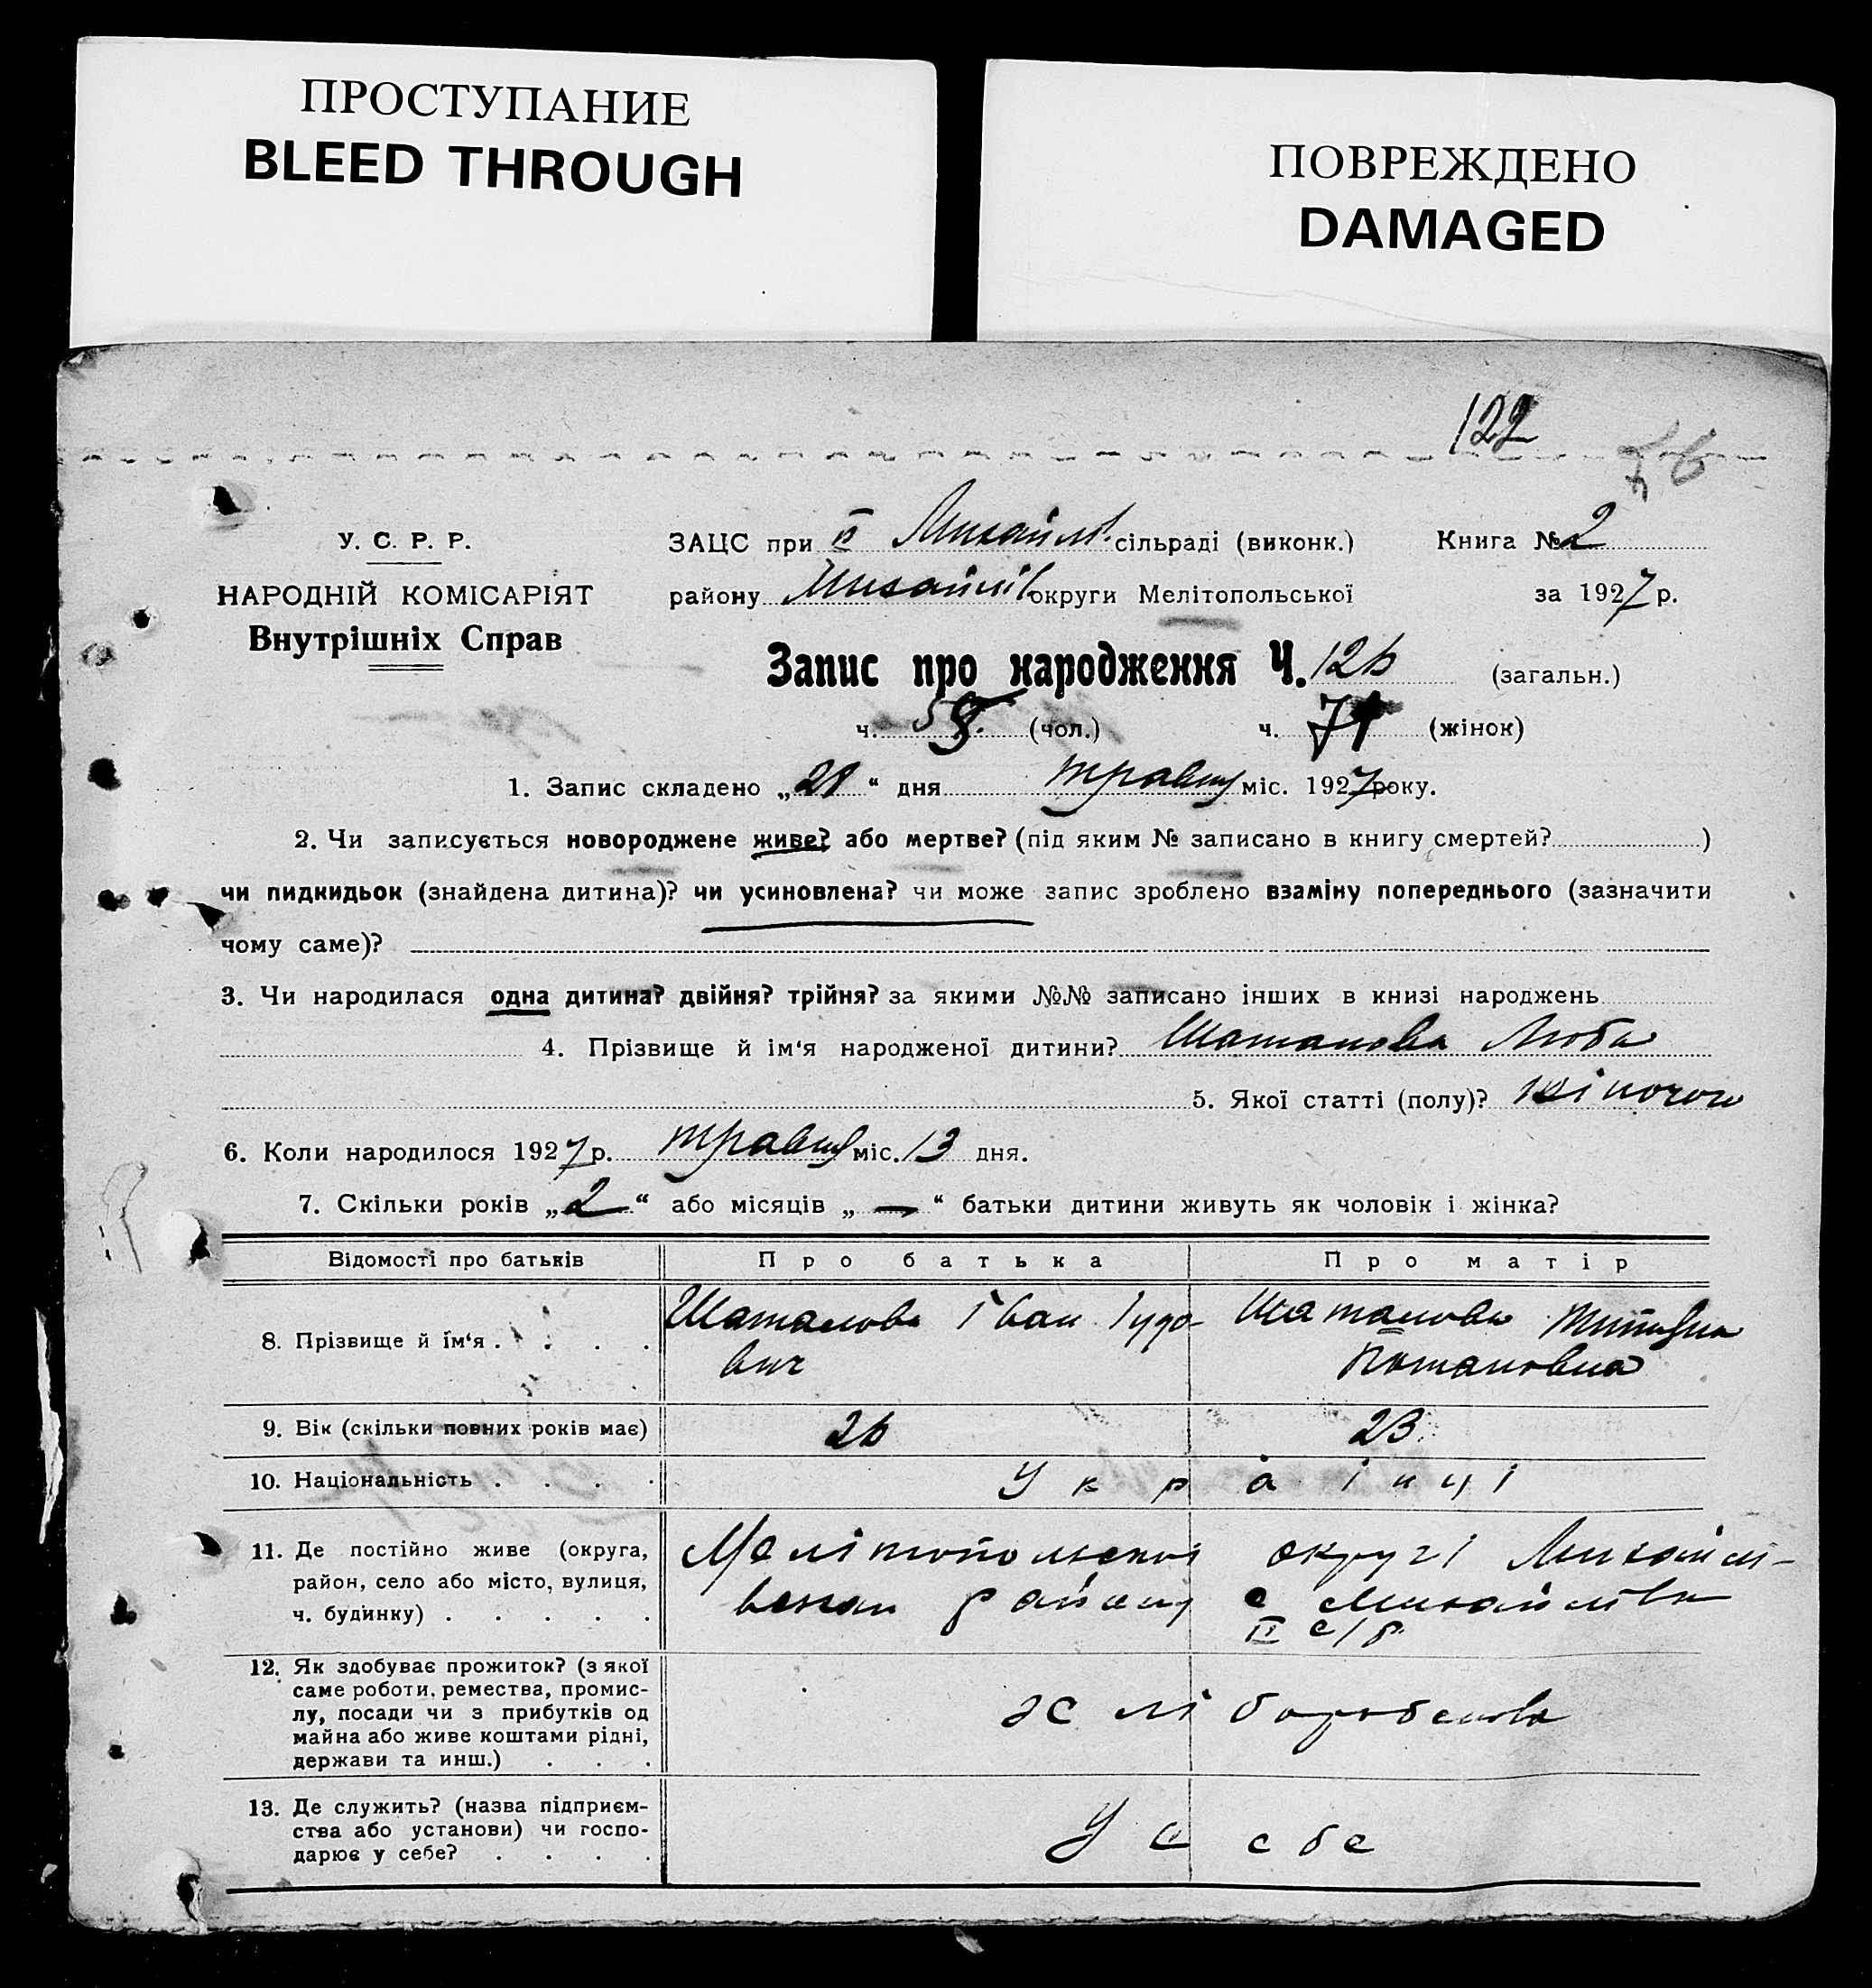 ПРОСТУПАНИЕ
BLEED THROUGH
ПОВРЕЖДЕНО
DAMAGED
122
У. С. Р. Р.
НАРОДНІЙ КОМІСАРІЯТ
Внутрішніх Справ
ЗАЦС при II Михайлів. сільраді (виконк.) Книга № 2
району Михайлів округи Мелітопольської за 1927 р.
Запис про народження Ч. 126 (загальн.)
ч. (чол.) ч. 71 (жінок)
1. Запис складено „28“ дня травня міс. 1927 року.
2. Чи записується новороджене живе? або мертве? (під яким № записано в книгу смертей? )
чи пидкидьок (знайдена дитина)? чи усиновлена? чи може запис зроблено взаміну попереднього (зазначити
чому саме)?
3. Чи народилася одна дитина? двійня? трійня? за якими №№ записано інших в книзі народжень
4. Прізвище й ім‘я народженої дитини? Шаталова Люба
5. Якої статті (полу)? жіночого
6. Коли народилося 1927 р. травня міс. 13 дня.
7. Скільки років „2“ або місяців „—“ батьки дитини живуть як чоловік і жінка?
Відомості про батьків Про батька Про матір
8. Прізвище й ім‘я . . . . Шаталов Іван Іудо-
вич
Шаталова
Потаповна
9. Вік (скільки повних років має) 26 23
10. Національність . . . . Українці
11. Де постійно живе (округа,
район, село або місто, вулиця,
ч. будинку) . . . . .
Мелітопольскої округі Михайлі-
вскаи району с Михайлівка
II с/р.
12. Як здобуває прожиток? (з якої
саме роботи, ремества, промис-
лу, посади чи з прибутків од
майна або живе коштами рідні,
держави та инш.) . . .
хліборобство
13. Де служить? (назва підприєм-
ства або установи) чи госпо-
дарює у себе? . . . .
У себе